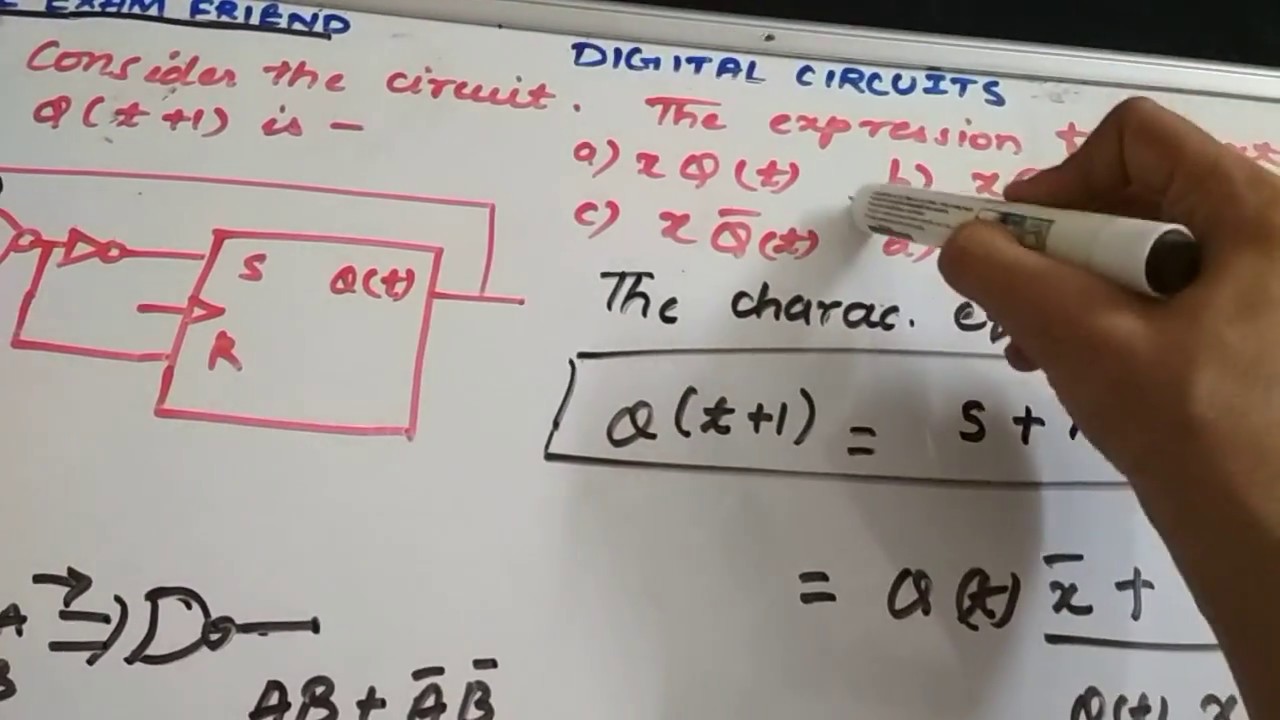 EXAM FRIEND
DIGITAL CIRCUITS
Consider the circuit. The expression
Q(t+1) is -
a) x Q(t) b) x
c) x Q̅(t) d)
S Q(t)
R
The charac.
Q(t+1) = S +
= Q(t) x̅ +
A
B
AB + A̅ B̅
Q(t) x